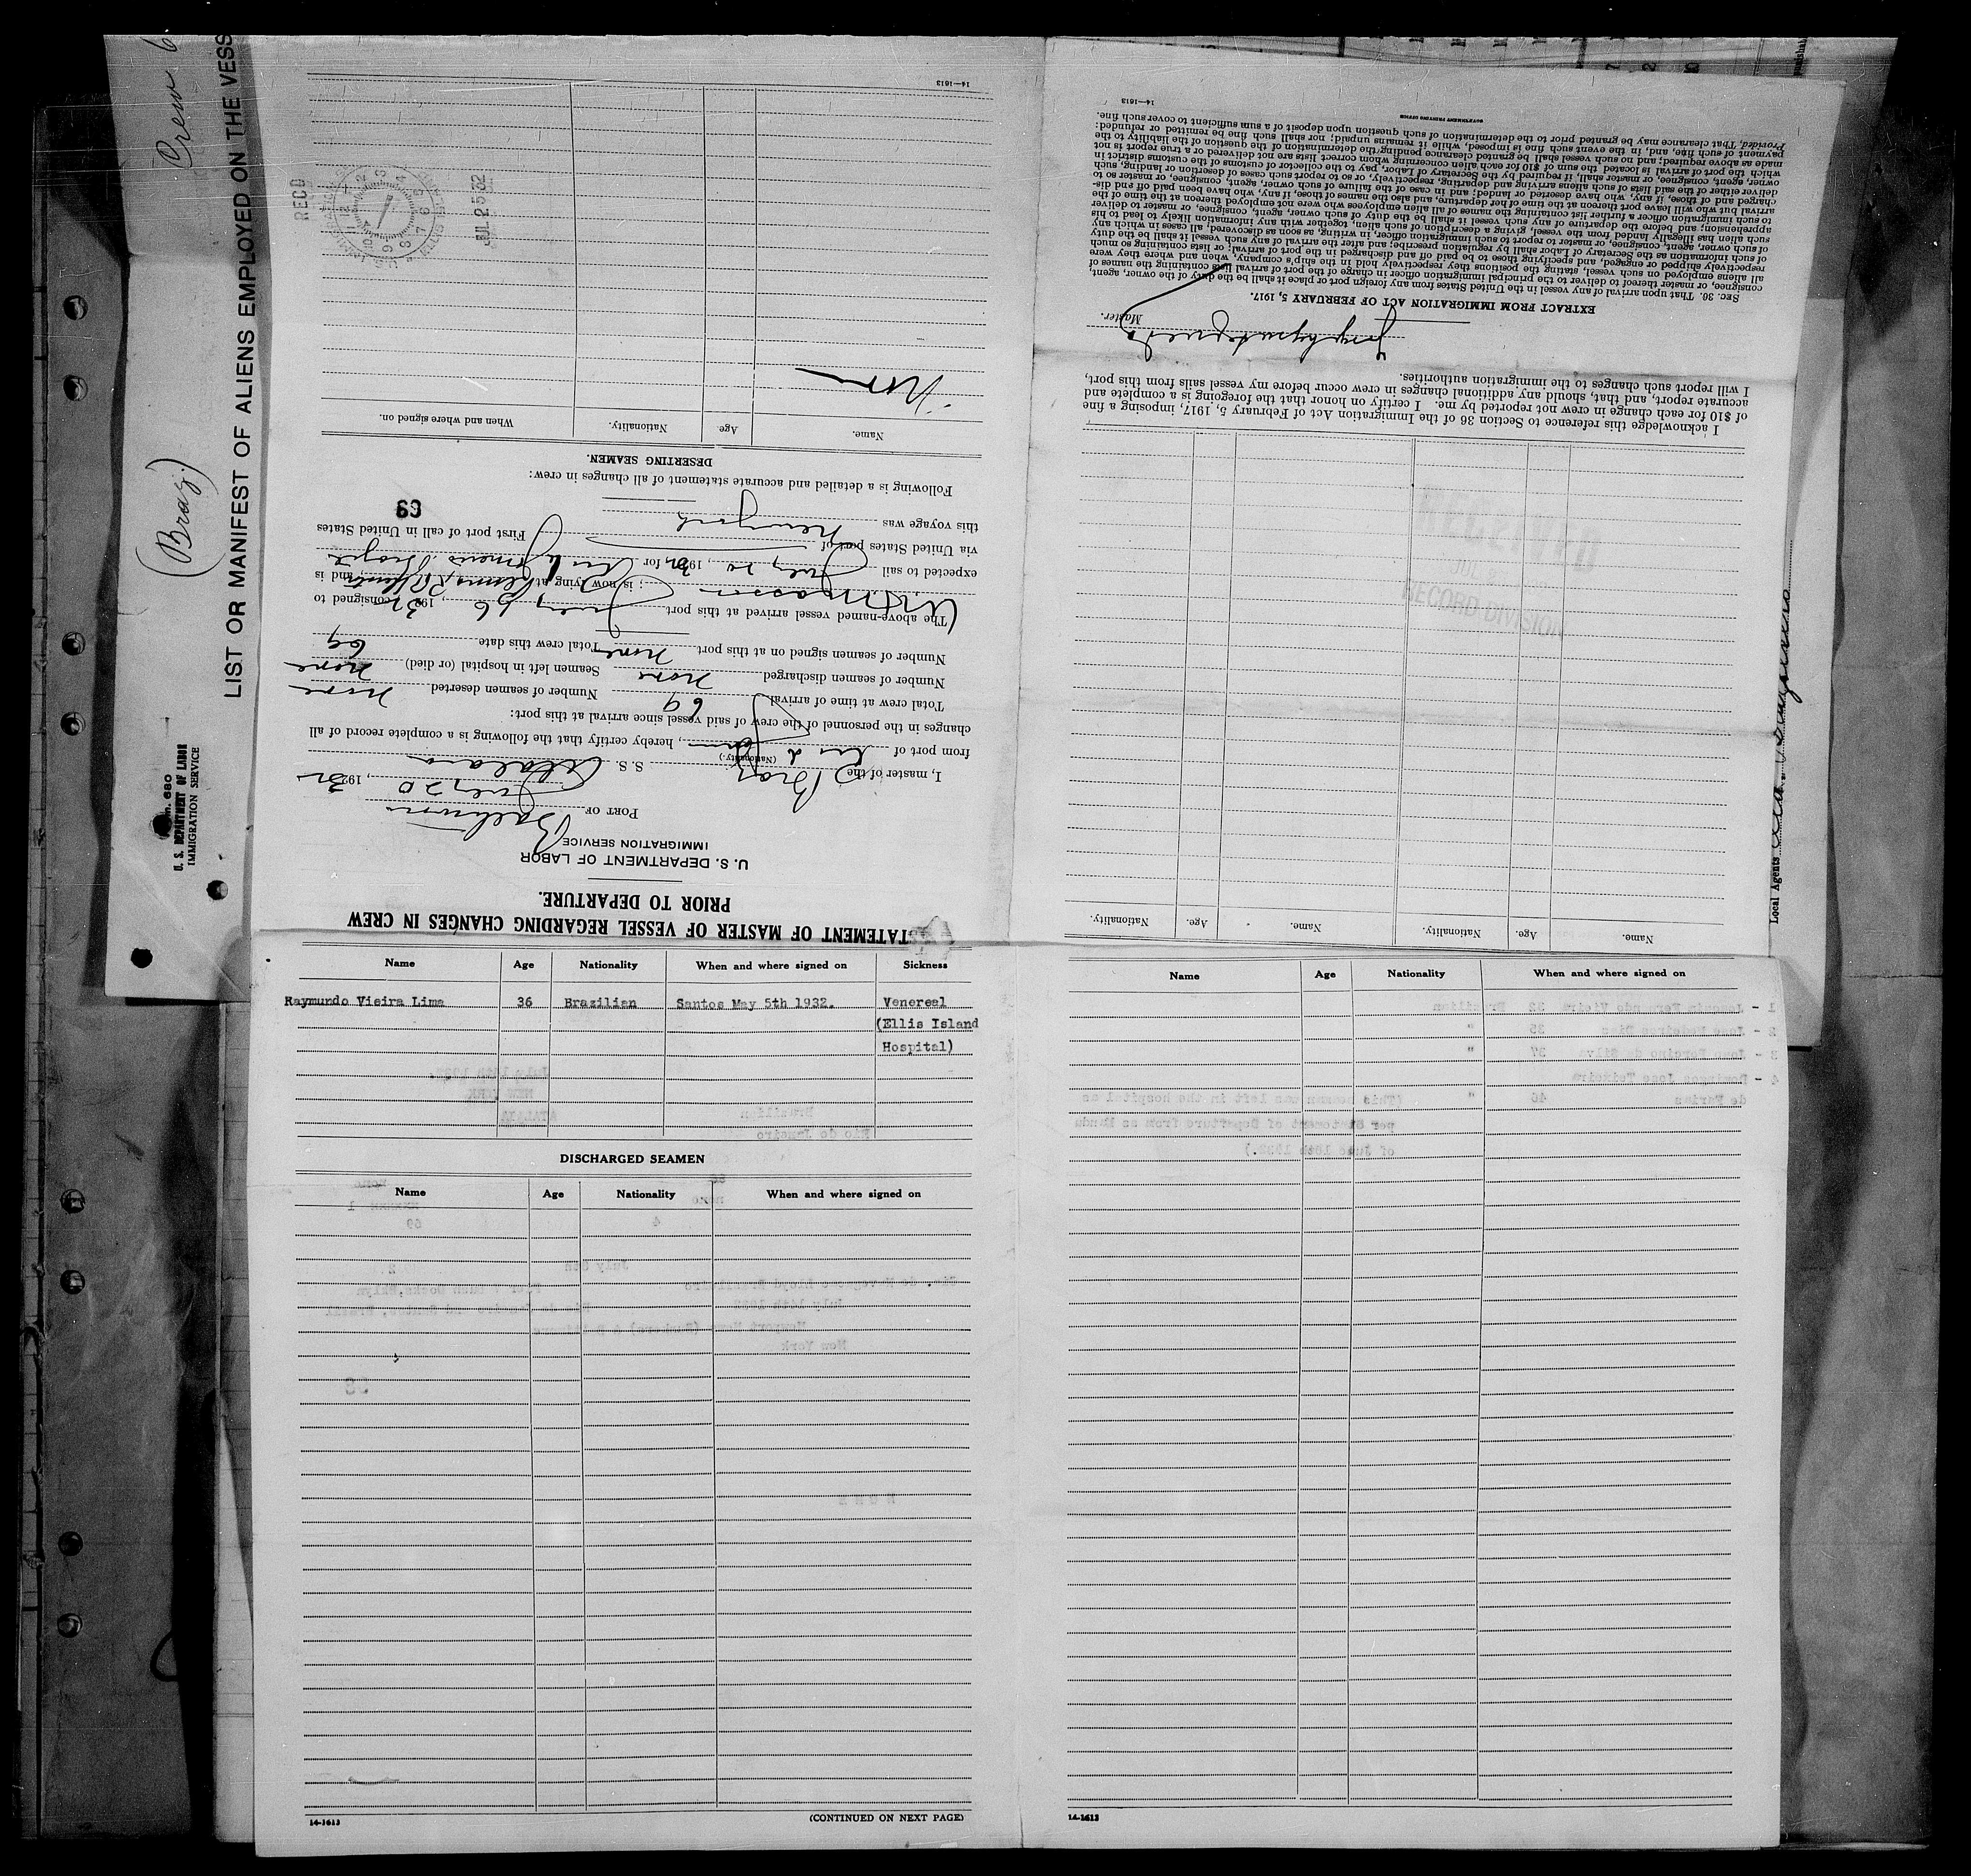 Crew 6
(Braz.)
LIST OR MANIFEST OF ALIENS EMPLOYED ON THE VESS
680
U. S. DEPARTMENT OF LABOR
IMMIGRATION SERVICE
STATEMENT OF MASTER OF VESSEL REGARDING CHANGES IN CREW
PRIOR TO DEPARTURE.
U. S. DEPARTMENT OF LABOR
IMMIGRATION SERVICE
PORT OF Baltimore
July 20, 1932
I, master of the Braz (Nationality.) S. S. Atalaia
from port of , hereby certify that the following is a complete record of all
changes in the personnel of the crew of said vessel since arrival at this port:
Total crew at time of arrival 69 Number of seamen deserted none
Number of seamen discharged none Seamen left in hospital (or died) none
Number of seamen signed on at this port none Total crew this date 69
The above-named vessel arrived at this port July 16, 1932, consigned to
; is now lying at , and is
expected to sail July 20, 1932, for
via United States port of First port of call in United States
this voyage was New York
69
Following is a detailed and accurate statement of all changes in crew:
DESERTING SEAMEN.
Name. Age. Nationality. When and where signed on.
None
REC'D
JUL 25 32
14—1613
Name. Age. Nationality. Name. Age. Nationality.
RECEIVED
RECORD DIVISION
I acknowledge this reference to Section 36 of the Immigration Act of February 5, 1917, imposing a fine
of $10 for each change in crew not reported by me. I certify on honor that the foregoing is a complete and
accurate report, and that, should any additional changes in crew occur before my vessel sails from this port,
I will report such changes to the immigration authorities.
Master.
EXTRACT FROM IMMIGRATION ACT OF FEBRUARY 5, 1917.
SEC. 36. That upon arrival of any vessel in the United States from any foreign port or place it shall be the duty of the owner, agent,
consignee, or master thereof to deliver to the principal immigration officer in charge of the port of arrival lists containing the names of
all aliens employed on such vessel, stating the positions they respectively hold in the ship's company, when and where they were
respectively shipped or engaged, and specifying those to be paid off and discharged in the port of arrival; or lists containing so much
of such information as the Secretary of Labor shall by regulation prescribe; and after the arrival of any such vessel it shall be the duty
of such owner, agent, consignee, or master to report to such immigration officer, in writing, as soon as discovered, all cases in which any
such alien has illegally landed from the vessel, giving a description of such alien, together with any information likely to lead to his
apprehension; and before the departure of any such vessel it shall be the duty of such owner, agent, consignee, or master to deliver
to such immigration officer a further list containing the names of all alien employees who were not employed thereon at the time of the
arrival but who will leave port thereon at the time of her departure, and also the names of those, if any, who have been paid off and dis-
charged and of those, if any, who have deserted or landed; and in case of the failure of such owner, agent, consignee, or master so to
deliver either of the said lists of such aliens arriving and departing, respectively, or so to report such cases of desertion or landing, such
owner, agent, consignee, or master shall, if required by the Secretary of Labor, pay to the collector of customs of the customs district in
which the port of arrival is located the sum of $10 for each alien concerning whom correct lists are not delivered or a true report is not
made as above required; and no such vessel shall be granted clearance pending the determination of the question of the liability to the
payment of such fine, and, in the event such fine is imposed, while it remains unpaid; nor shall such fine be remitted or refunded:
Provided, That clearance may be granted prior to the determination of such question upon deposit of a sum sufficient to cover such fine.
14—1613
GOVERNMENT PRINTING OFFICE
Local Agents
Name Age Nationality When and where signed on Sickness
Raymundo Vieira Lima 36 Brazilian Santos May 5th 1932. Venereal
(Ellis Island
Hospital)
DISCHARGED SEAMEN
Name Age Nationality When and where signed on
14-1613
(CONTINUED ON NEXT PAGE)
Name Age Nationality When and where signed on
14-1613